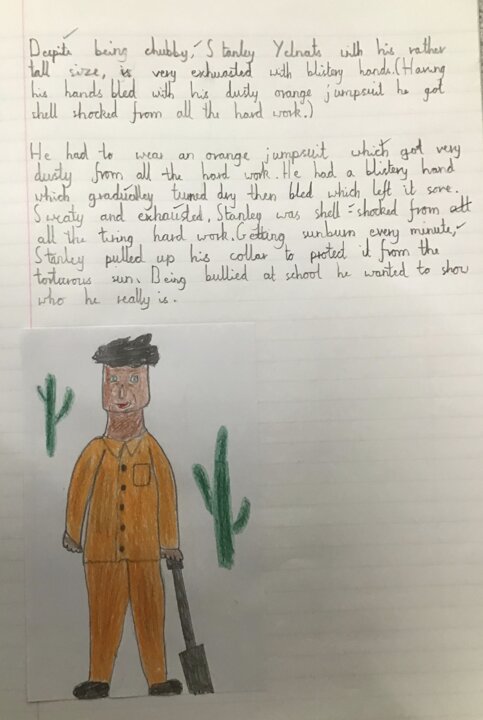 Despite being chubby, Stanley Yelnats with his rather
tall size, is very exhausted with blistery hands.(Having
his hands bled with his dusty orange jumpsuit he got
shell shocked from all the hard work.)
He had to wear an orange jumpsuit which got very
dusty from all the hard work. He had a blistery hand
which gradually turned dry then bled which left it sore.
Sweaty and exhausted, Stanley was shell-shocked from att
all the tiring hard work. Getting sunburn every minute,
Stanley pulled up his collar to protect it from the
torturous sun. Being bullied at school he wanted to show
who he really is.